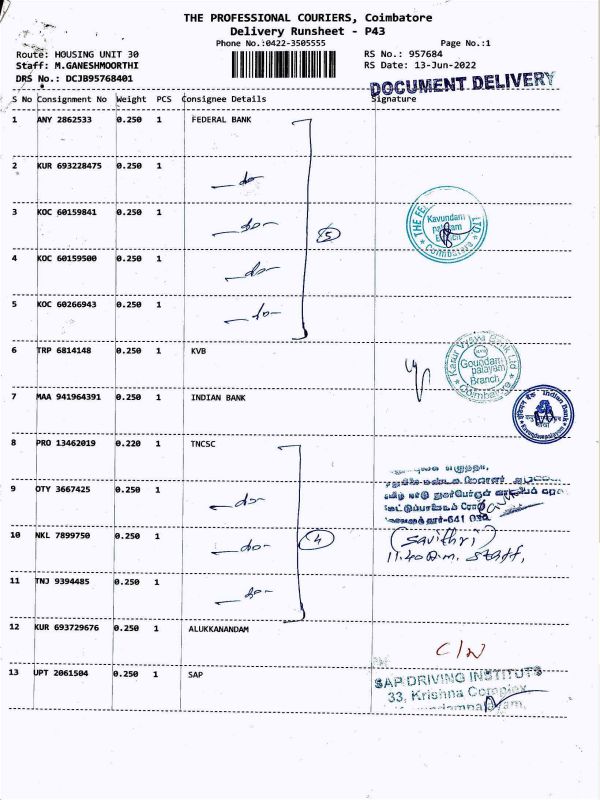 THE PROFESSIONAL COURIERS, Coimbatore
Delivery Runsheet - P43
Phone No.:0422-3505555 Page No.:1
Route: HOUSING UNIT 30 RS No.: 957684
Staff: M.GANESHMOORTHI RS Date: 13-Jun-2022
DRS No.: DCJB95768401
DOCUMENT DELIVERY
S No Consignment No Weight PCS Consignee Details Signature
1 ANY 2862533 0.250 1 FEDERAL BANK
2 KUR 693228475 0.250 1 -do-
3 KOC 60159841 0.250 1 -do-
Kavundam
palayam
Branch
Coimbatore
5
4 KOC 60159500 0.250 1 -do-
5 KOC 60266943 0.250 1 -do-
6 TRP 6814148 0.250 1 KVB
Karur Vysya Bank Ltd
Goundam
palayam
Branch
Coimbatore
7 MAA 941964391 0.250 1 INDIAN BANK
Indian Bank
8 PRO 13462019 0.220 1 TNCSC
9 OTY 3667425 0.250 1 -do-
-641 030
10 NKL 7899750 0.250 1 -do-
4
(Savithri)
11.40 a.m. Staff,
11 TNJ 9394485 0.250 1 -do-
12 KUR 693729676 0.250 1 ALUKKANANDAM
C/N
13 UPT 2061504 0.250 1 SAP
SAP DRIVING INSTITUTE
33, Krishna Complex,